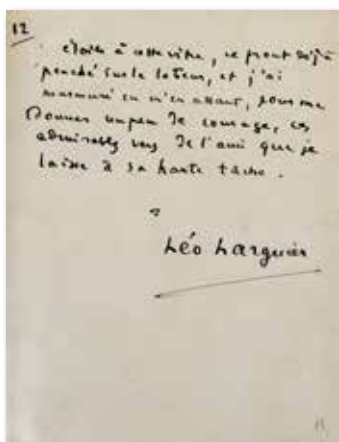 12
étoile à cette vitre, ce front déjà
penché sur le labeur, et j'ai
murmuré en m'en allant, pour me
donner un peu de courage, ces
admirables vers de l'ami que je
laisse à sa haute tâche.
Léo Larguier